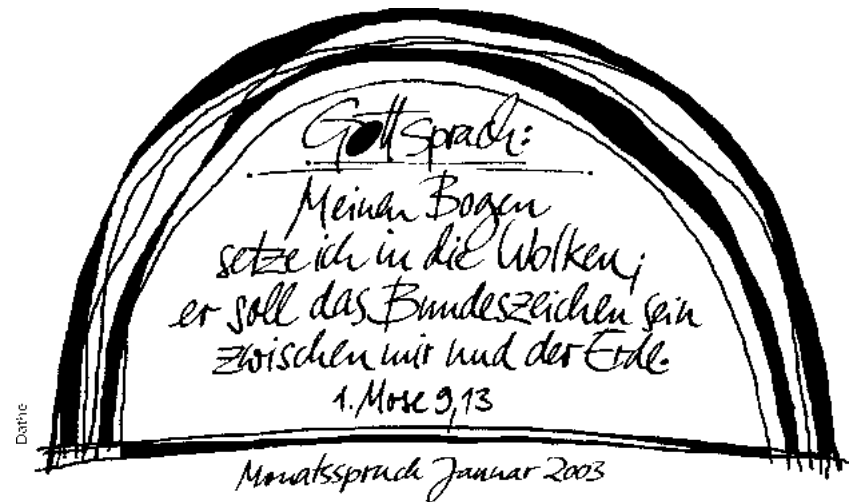 Gott sprach:
Meinen Bogen
setze ich in die Wolken;
er soll das Bundeszeichen sein
zwischen mir und der Erde.
1. Mose 9,13
Monatsspruch Januar 2003
Dathe